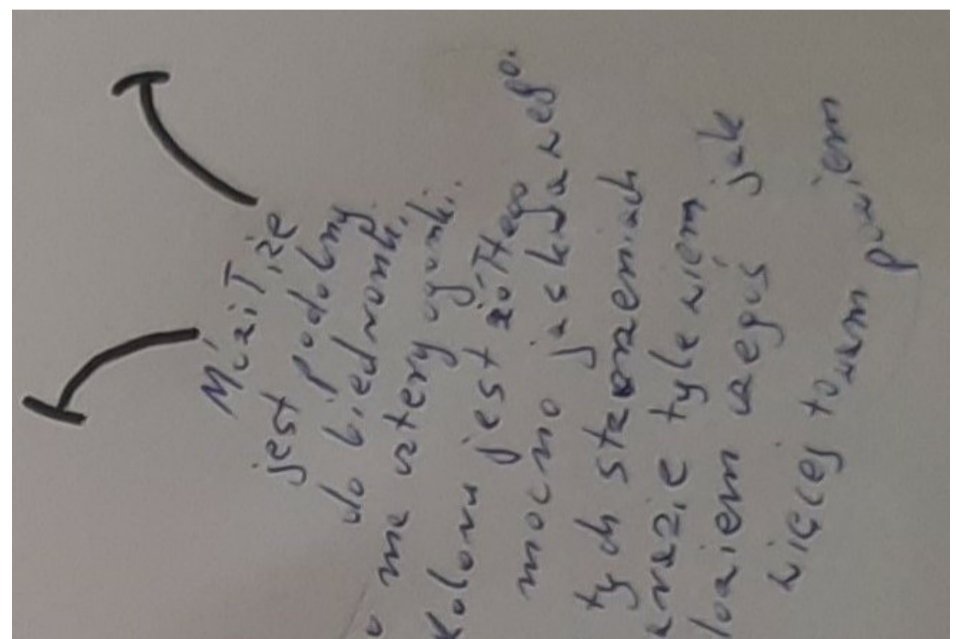 MówiT że
jest podobny
do biedronki.
o me cztery ogonki.
Koloru jest żółTego
mocno jaskrawego.
tych stworzeniach
razie tyle wiem
czegoś jak
więcej to wam powiem